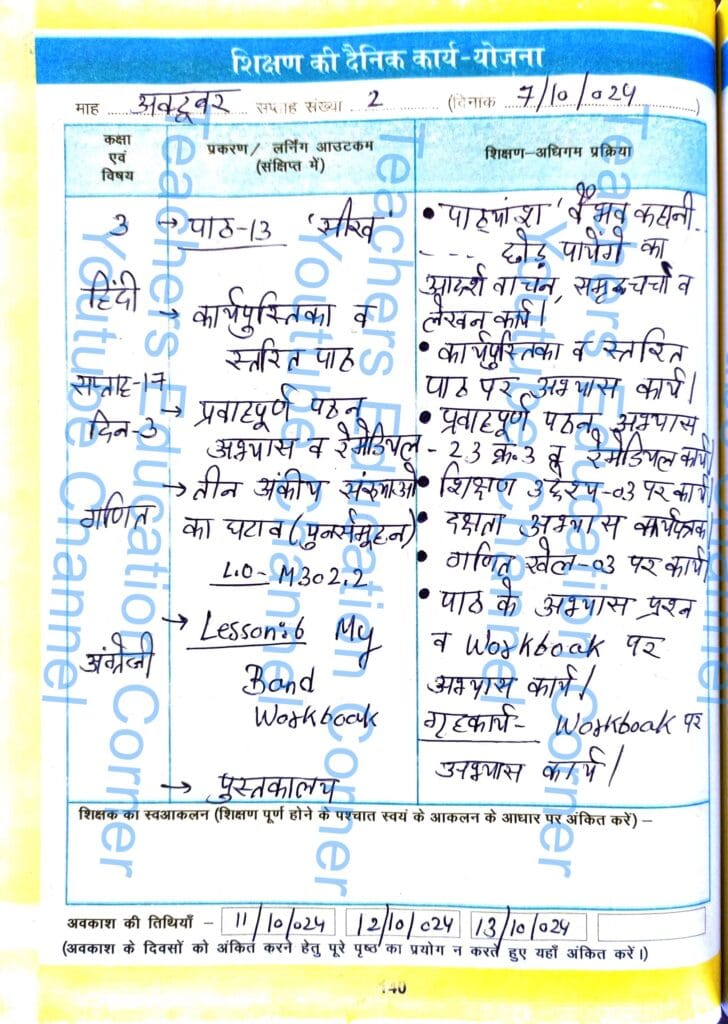 शिक्षण की दैनिक कार्य-योजना
माह अक्टूबर सप्ताह संख्या 2 (दिनाक 7/10/024)
कक्षा
एवं
विषय
प्रकरण/ लर्निंग आउटकम
(संक्षिप्त में)
शिक्षण-अधिगम प्रक्रिया
3
हिंदी
सप्ताह-17
दिन-3
→ पाठ-13 'सीख'
→ कार्यपुस्तिका व
स्तरित पाठ
→ प्रवाहपूर्ण पठन
अभ्यास व रेमेडियल
• पाठ्यांश 'वैभव कहानी
---- छोड़ पायेंगे का
आदर्श वाचन, समूह चर्चा व
लेखन कार्य।
• कार्यपुस्तिका व स्तरित
पाठ पर अभ्यास कार्य।
• प्रवाहपूर्ण पठन अभ्यास
- 2.3 क्र.3 व रेमेडियल कार्य
गणित
→ तीन अंकीय संख्याओं
का घटाव (पुनर्समूहन)
L.O- M302.2
• शिक्षण उद्देश्य-03 पर कार्य
• दक्षता अभ्यास कार्यपत्रक
• गणित खेल-03 पर कार्य
अंग्रेजी
→ Lesson:6 My
Band
Workbook
• पाठ के अभ्यास प्रश्न
व Workbook पर
अभ्यास कार्य।
गृहकार्य- Workbook पर
अभ्यास कार्य।
→ पुस्तकालय
शिक्षक का स्वआकलन (शिक्षण पूर्ण होने के पश्चात स्वयं के आकलन के आधार पर अंकित करें) –
अवकाश की तिथियाँ – 11/10/024 12/10/024 13/10/024
(अवकाश के दिवसों को अंकित करने हेतु पूरे पृष्ठ का प्रयोग न करते हुए यहाँ अंकित करें।)
140
Teachers Education Corner
Youtube Channel
Teachers Education Corner
Youtube Channel
Teachers Education Corner
Youtube Channel